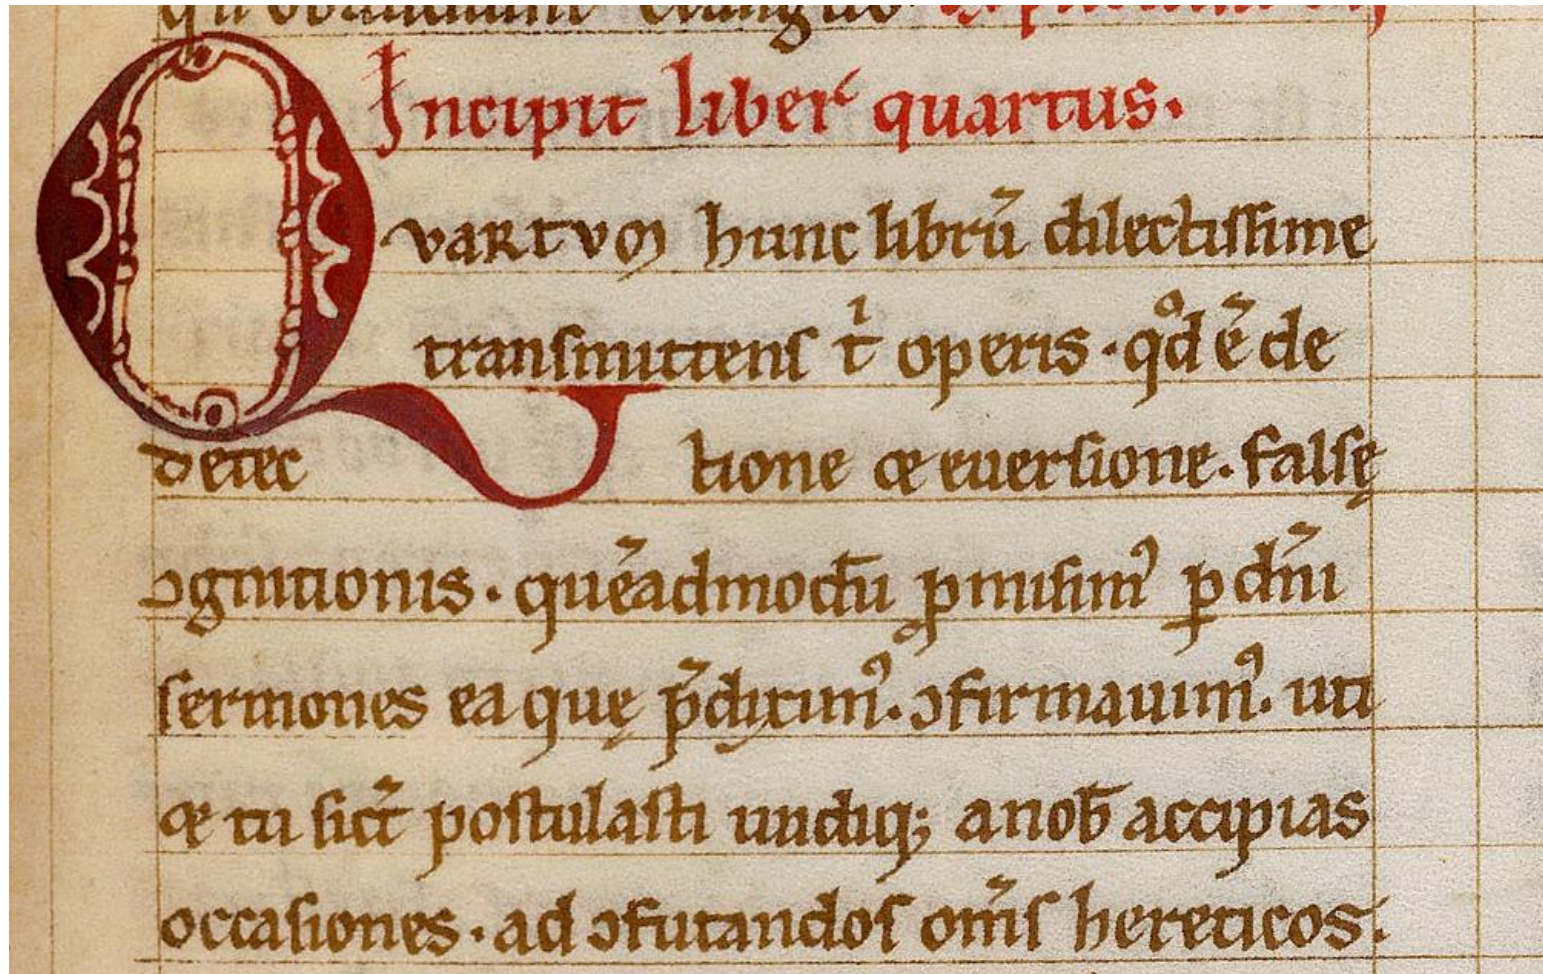 Incipit liber quartus.
QVARTVM hunc librū dilectissime
transmittens tⁱ operis · qͦd ē de
detectione & euersione · falsę
ɔgnitionis · quēadmodū ꝓmisimꝰ ꝑ dn̄i
sermones ea quę p̄diximꝰ · ɔfirmauimꝰ · uti
& tu sic̄t postulasti undiq; a nob̄ accipias
occasiones · ad ɔfutandos om̄s hereticos ·